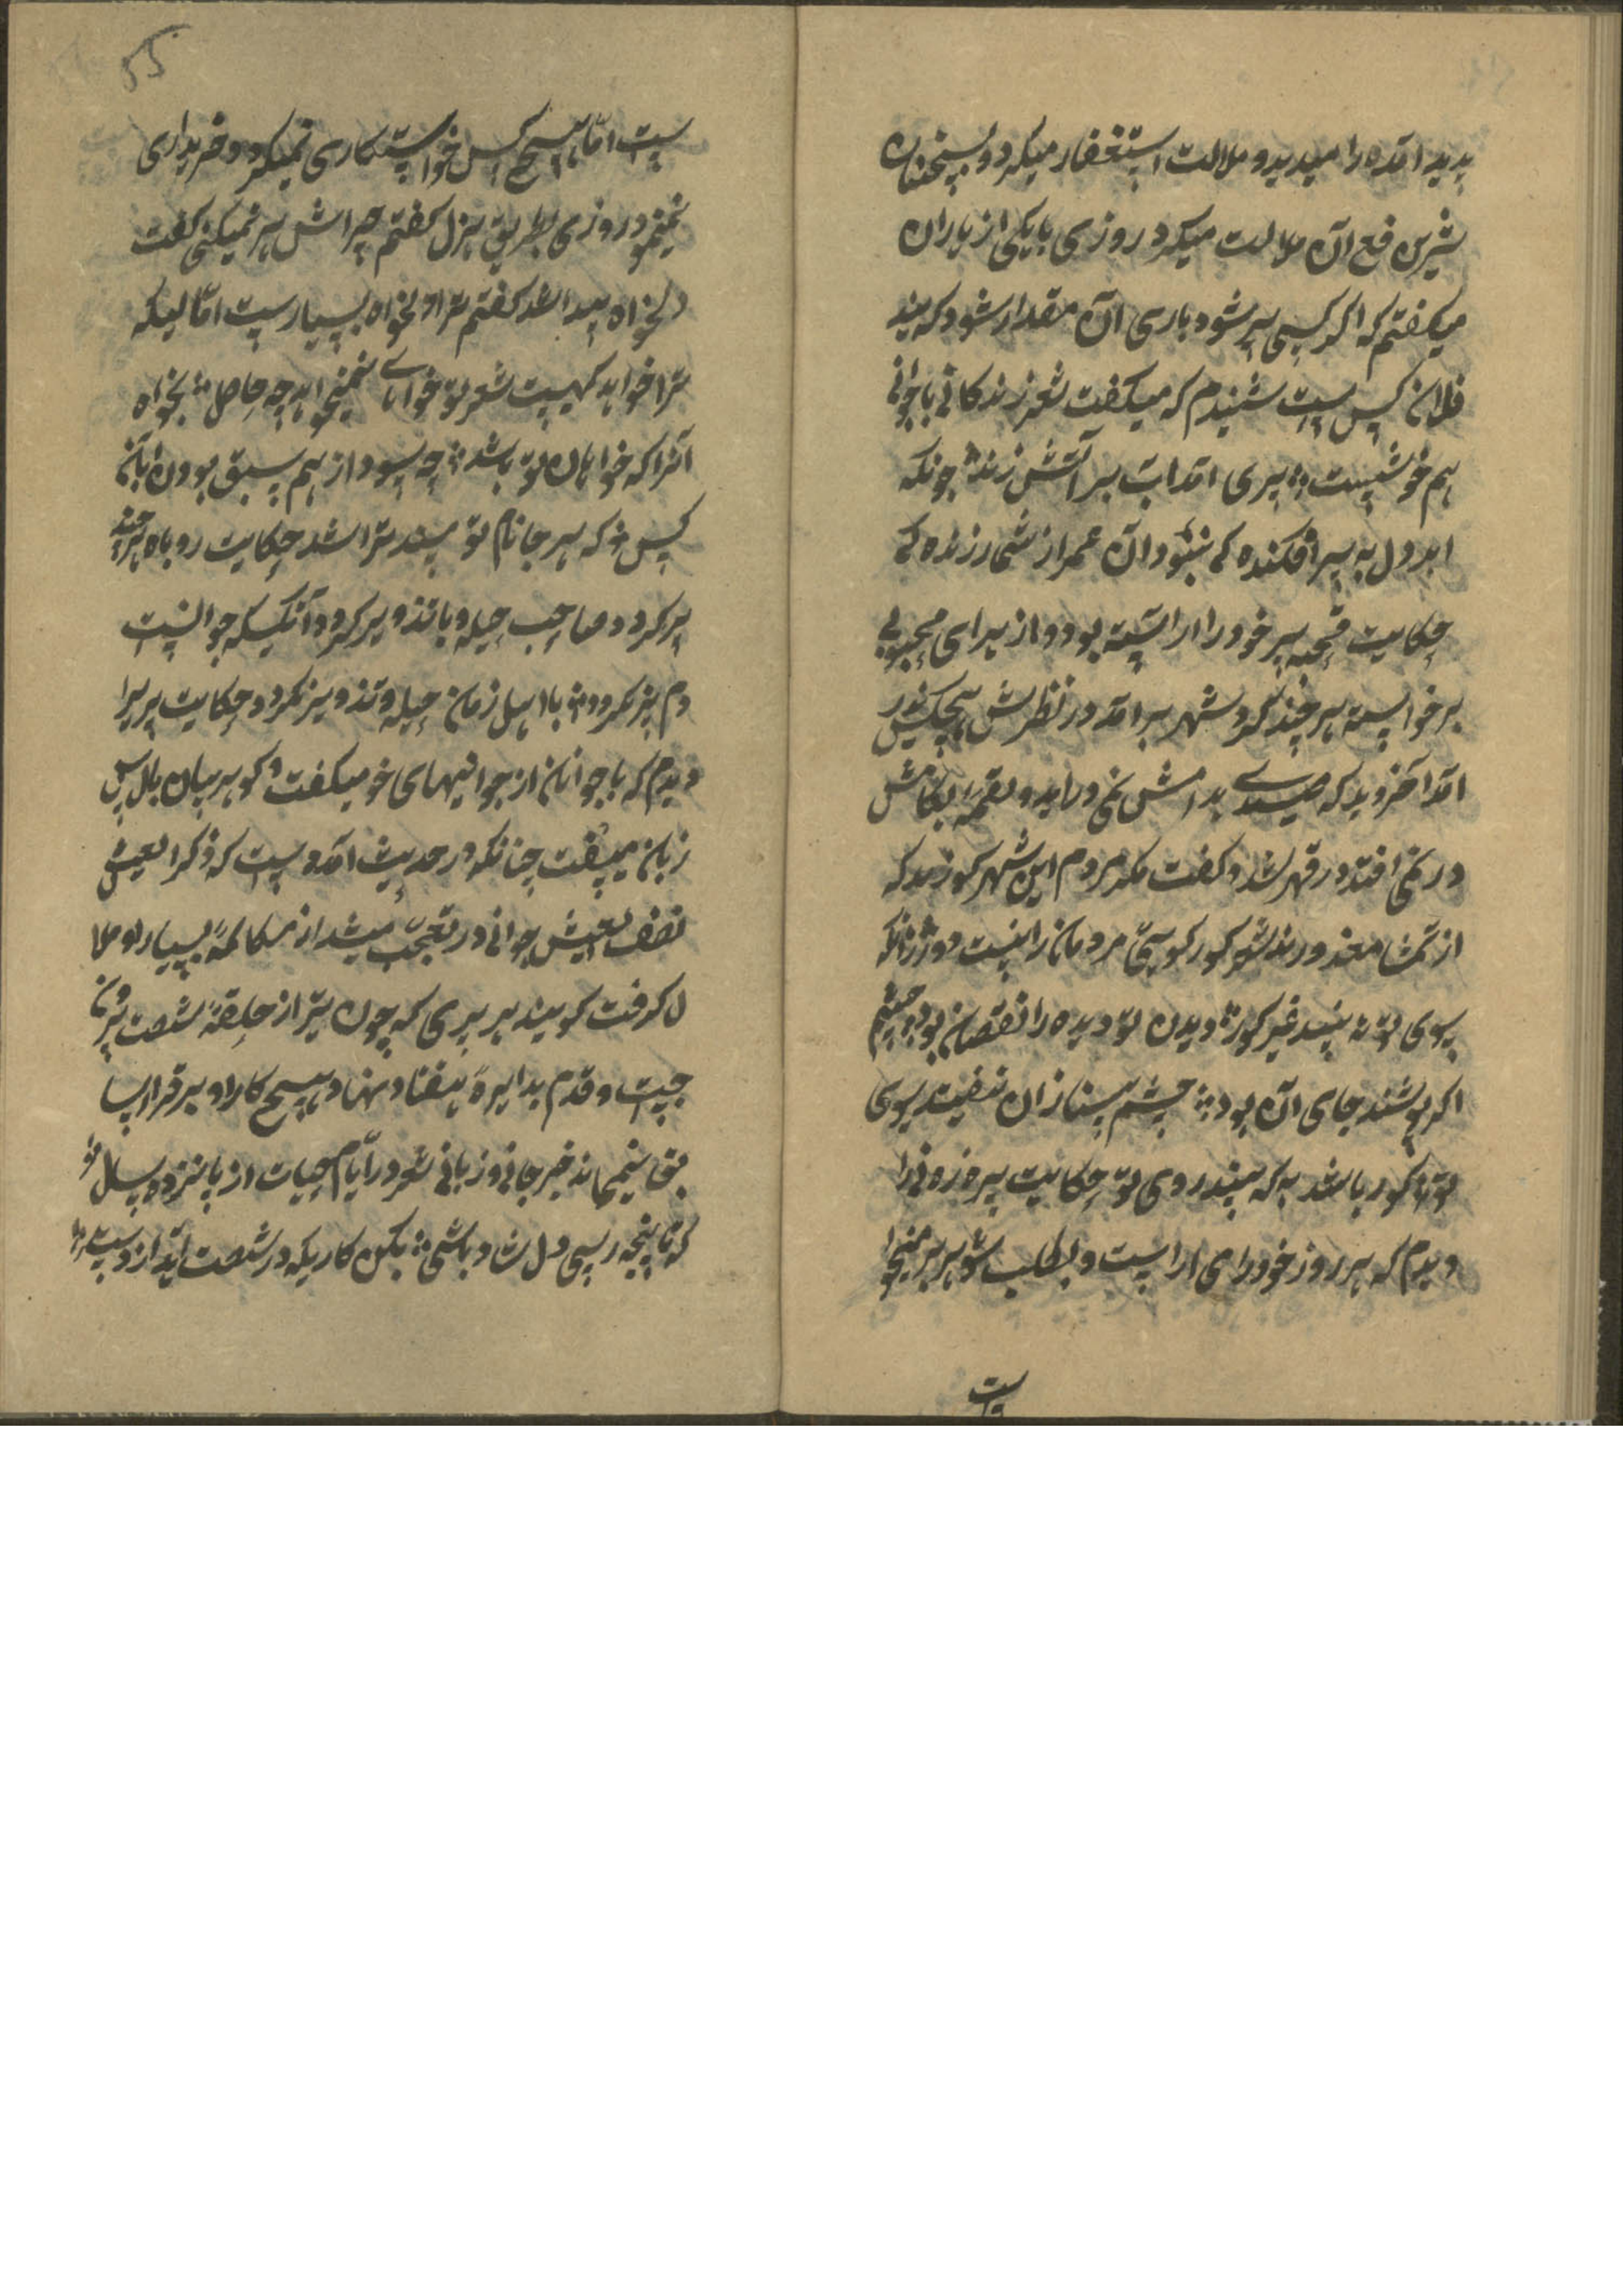 پدید امده را میدید و ملالت استغفار میکرد و بسخنان
شیرین فع آن ملالت میکرد روزی بایکی از یاران
میکفتم که اکر کسی پیر شود باری آن مقدار شود که
فلان کس است شنیدم که میکفت شعر زندکانی با جوانی
هم خوشیست پیری امد اب بر آتش زند چونکه
حکایت قحبه پیر خود را اراسته بود و از برای محبوبی
برخواسته هر چند کرد شهر برامد در نظرش هیچکس
در نمی افتد در قهر شد و کفت مکر مردم این شهر کورند که
از تماشا معذورند شعر کور کو سیّ مردمان را نیست دور زانکه
بسوی تو نه بیند غیر کور دیدن تو دیده را نقصان بود چشم
اکر پوشند جای آن بود چشم بینا زان نیفتد بسوی
تو تا کور باشد به که بیند روی تو حکایت پیره زنی را
دیدم که هر روز خود را می اراست و بطلب شوهر بر میخوا
ست
55
ست امّا هیچ کس خواستکاری نمیکرد و خریداری
نمینمود روزی بطریق هزل کفتم چرا شوهر نمیکنی کفت
دلخواه پیدا نشد کفتم ترا دلخواه بسیارست امّا لیکه
ترا خواهد کهیست شعر تو خواهای نمیخواهد چه حاصل بخواه
آنرا که خواهان تو باشد چه سود از هم سبق بودن بآن
کس که هر جا نام تو بیند تراشد حکایت روباه هر چند
پیر کردد صاحب حیله و با تذویر کردد و آنکسیکه جوانیست
دم پیز نکردد با اهل زمان حیله و تذویر نکردد حکایت پیریرا
دیدم که با جوانان از جوانیهای خود میکفت و کوهر بیان بالماس
زبان میسفت چنانکه در حدیث آمده است که ذکر العیش
نصف العیش جوانی در تعجّب میشد از مکالمهٔ بسیار او ملا
ل کرفت کویند هر پیری که چون تیر از حلقهٔ شصت بیرون
جست و قدم بدایرهٔ هفتاد نهاد هیچ کار او برقرار سا
بق نمیماند خبر جانی و زبانی شعر در ایّام حیات از پانزده سال
که تا پنجه رسی دل شاد باشی بکن کاریکه در شصت آید از دست